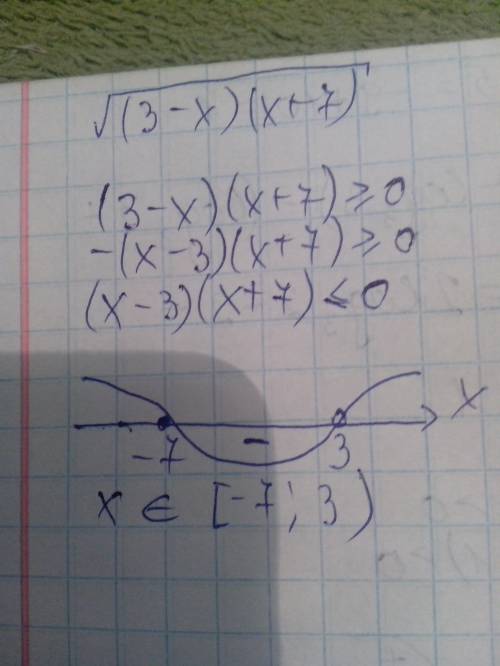 √(3-x)(x+7)
(3-x)(x+7)≥0
-(x-3)(x+7)≥0
(x-3)(x+7)≤0
-7 - 3 x
x ∈ [-7; 3)